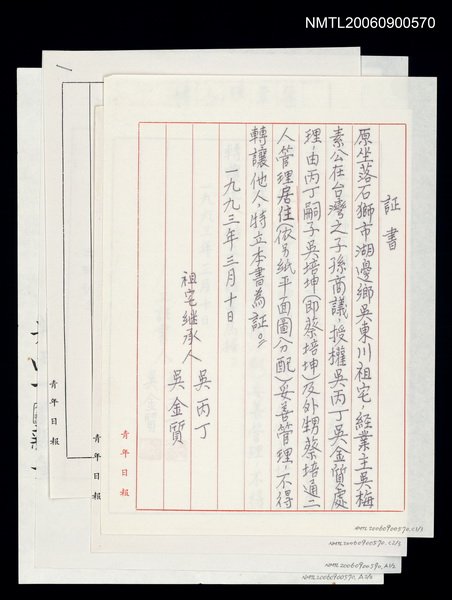 NMTL20060900570
証書
原坐落石獅市湖邊鄉吳東川祖宅，経業主吳梅
素公在台灣之子孫商議，授權吳丙丁吳金質處
理，由丙丁嗣子吳培坤（即蔡培坤）及外甥蔡培通二
人管理居住（依另紙平面圖分配）妥善管理，不得
轉讓他人，特立本書為証。
一九九三年三月十日
祖宅継承人 吳丙丁
吳金質
青年日報
青年日報
青年日報
NMTL20060900570, C1/3
NMTL20060900570, C2/3
NMTL20060900570, A1/2
NMTL20060900570, A2/2